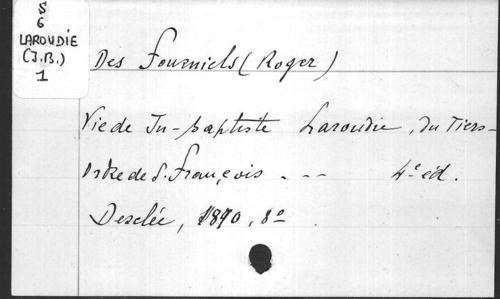 S
6
LAROUDIE
(J.B.)
1
Des Fourniels (Roger)
Vie de Jn-Baptiste Laroudie, du Tiers-
Ordre de S. François . -- 4e éd.
Desclée, 1890, 8º